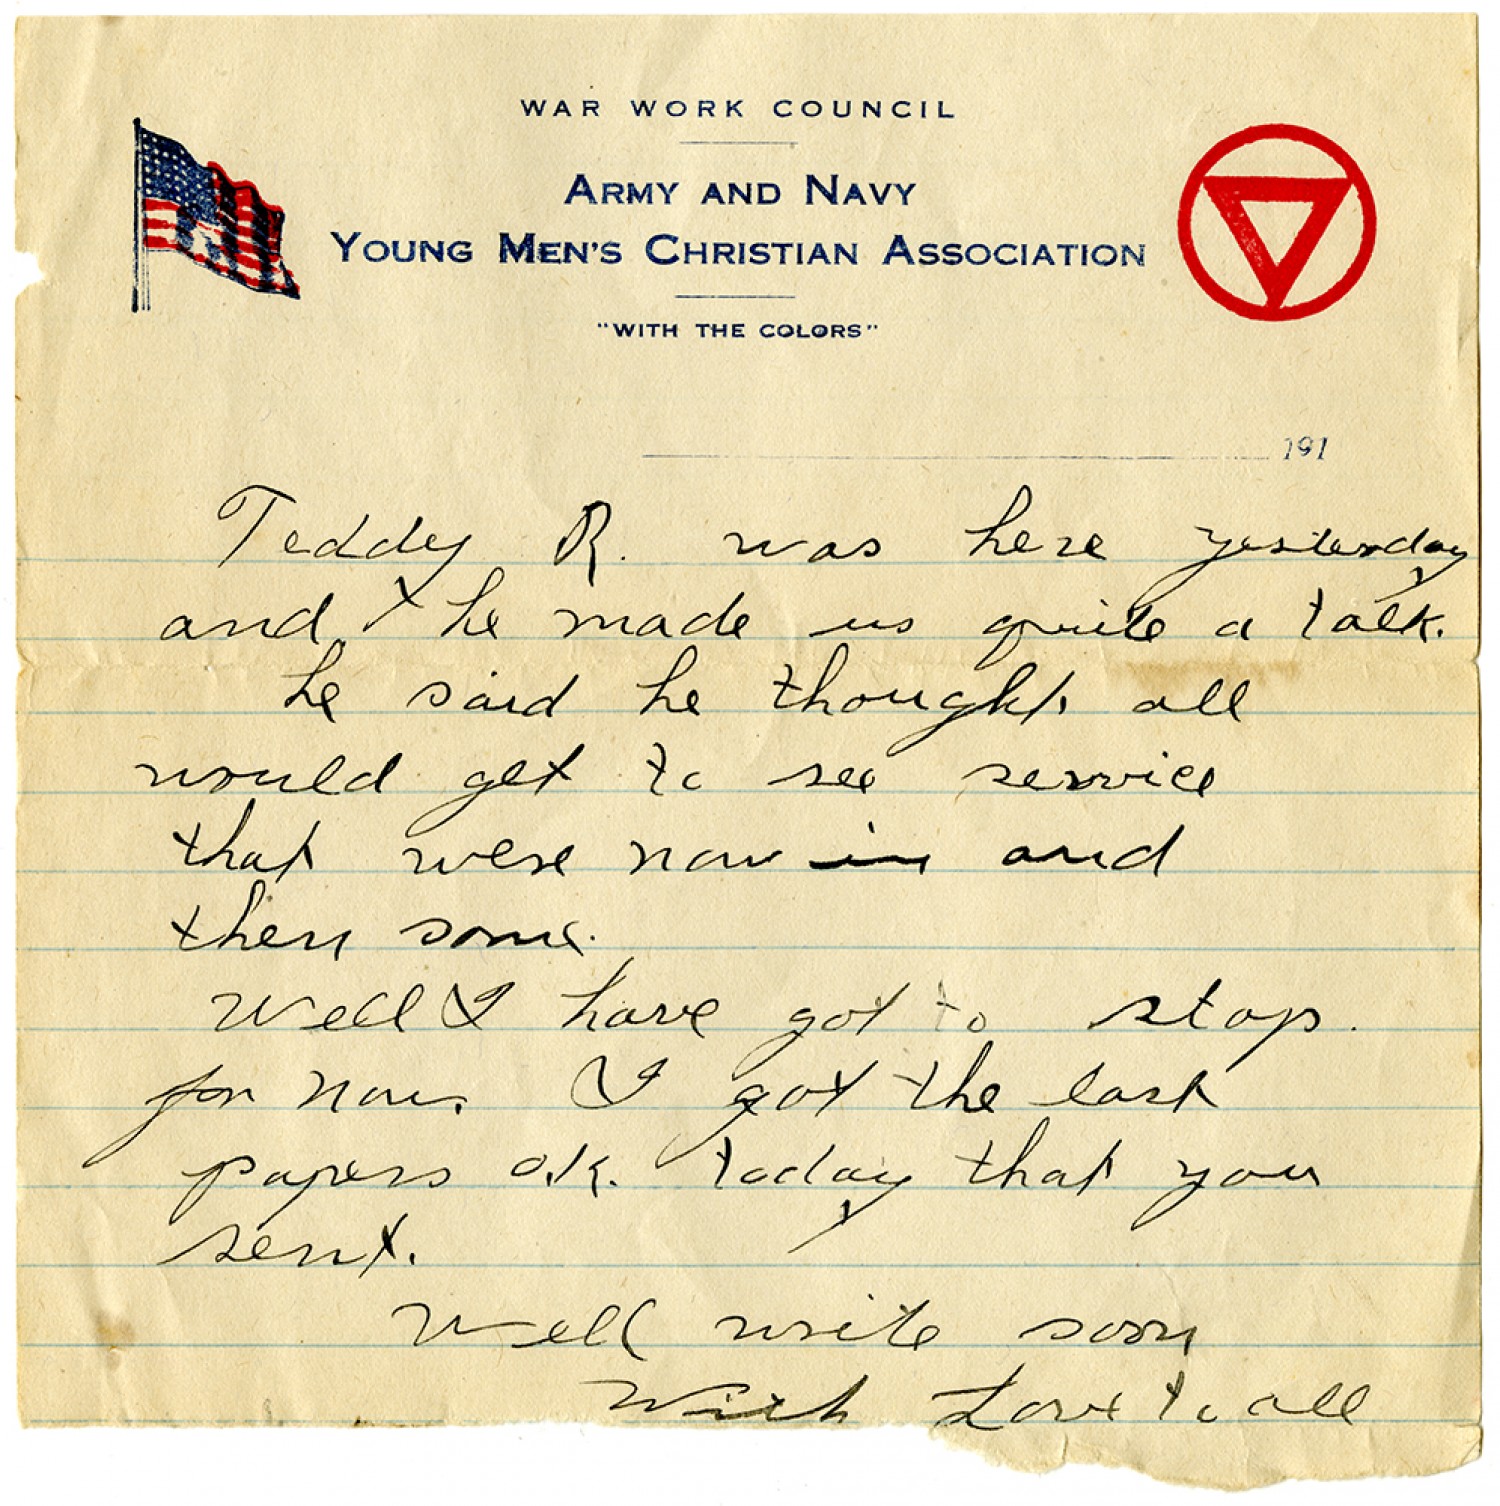 WAR WORK COUNCIL
ARMY AND NAVY
YOUNG MEN'S CHRISTIAN ASSOCIATION
"WITH THE COLORS"
191
Teddy R. was here yesterday
and he made us quite a talk.
he said he thought all
would get to see service
that were now in and
then some.
Well I have got to stop.
for now. I got the last
papers o.k. today that you
sent.
Well write soon
With Love to all